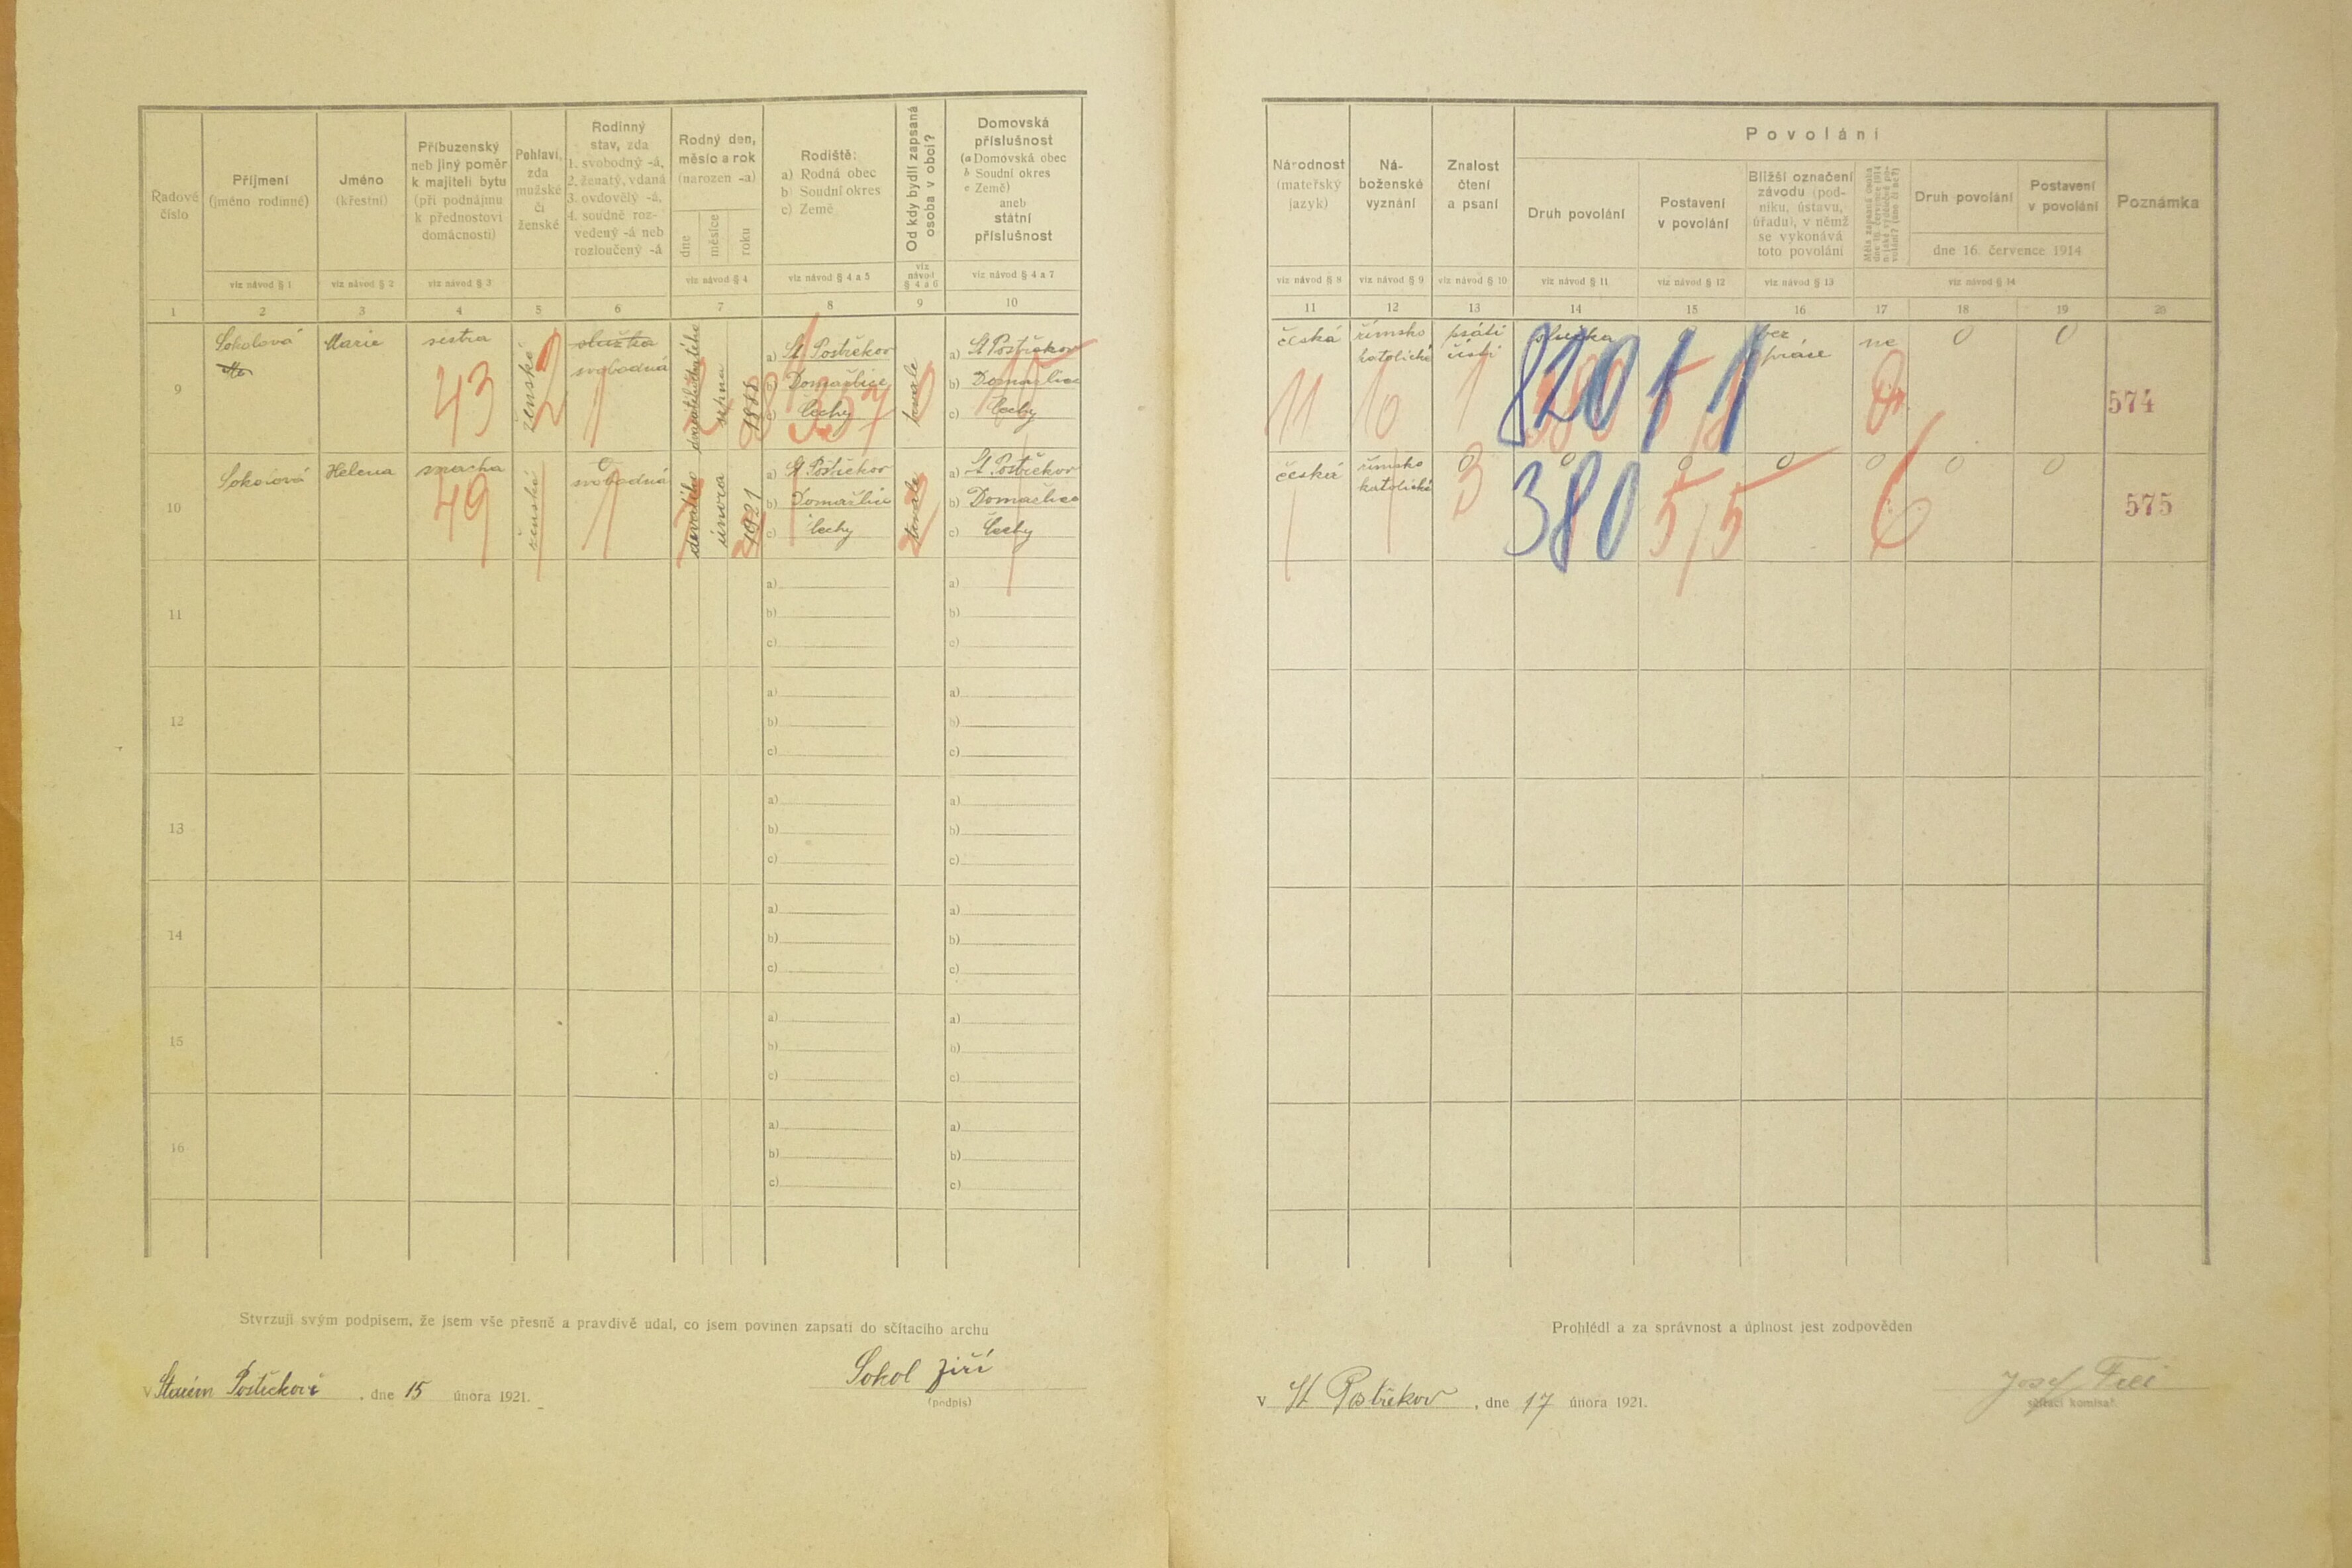 Řadové
číslo
Příjmení
(jméno rodinné)
Jméno
(křestní)
Příbuzenský
neb jiný poměr
k majiteli bytu
(při podnájmu
k přednostovi
domácnosti)
Pohlaví,
zda
mužské
či
ženské
Rodinný
stav, zda
1. svobodný -á,
2. ženatý, vdaná
3. ovdovělý -á,
4. soudně roz-
vedený -á neb
rozloučený -á
Rodný den,
měsíc a rok
(narozen -a)
dne
měsíce
roku
Rodiště:
a) Rodná obec
b) Soudní okres
c) Země
Od kdy bydlí zapsaná
osoba v obci?
Domovská
příslušnost
(a Domovská obec
b Soudní okres
c Země)
aneb
státní
příslušnost
viz návod § 1
viz návod § 2
viz návod § 3
viz návod § 4
viz návod § 4 a 5
viz
návod
§ 4 a 6
viz návod § 4 a 7
1 2 3 4 5 6 7 8 9 10
9
Sokolová
Marie
sestra
43
ženské
2
služka
svobodná
1
srpna
1888
a) St Postřekov
b) Domažlice
c) Čechy
a) St Postřekov
b) Domažlice
c) Čechy
10
Sokolová
Helena
49
ženské
svobodná
1
devátého
února
1921
a) St Postřekov
b) Domažlice
c) Čechy
a) St Postřekov
b) Domažlice
c) Čechy
11
a)
a)
b)
b)
c)
c)
12
a)
a)
b)
b)
c)
c)
13
a)
a)
b)
b)
c)
c)
14
a)
a)
b)
b)
c)
c)
15
a)
a)
b)
b)
c)
c)
16
a)
a)
b)
b)
c)
c)
Stvrzuji svým podpisem, že jsem vše přesně a pravdivě udal, co jsem povinen zapsati do sčítacího archu
v Starém Postřekově, dne 15 února 1921.
Sokol Jiří
(podpis)
Národnost
(mateřský
jazyk)
Ná-
boženské
vyznání
Znalost
čtení
a psaní
Povolání
Druh povolání
Postavení
v povolání
Bližší označení
závodu (pod-
niku, ústavu,
úřadu), v němž
se vykonává
toto povolání
Druh povolání
Postavení
v povolání
dne 16. července 1914
Poznámka
viz návod § 8
viz návod § 9
viz návod § 10
viz návod § 11
viz návod § 12
viz návod § 13
viz návod § 14
11 12 13 14 15 16 17 18 19 20
česká
římsko
katolické
psáti
čísti
služka
bez
práce
ne
0
0
11
1
820
574
česká
římsko
katolické
0
0
0
0
0
0
0
3
380
5
5
6
575
Prohlédl a za správnost a úplnost jest zodpověden
v St Postřekov, dne 17 února 1921.
Josef
sčítací komisař.